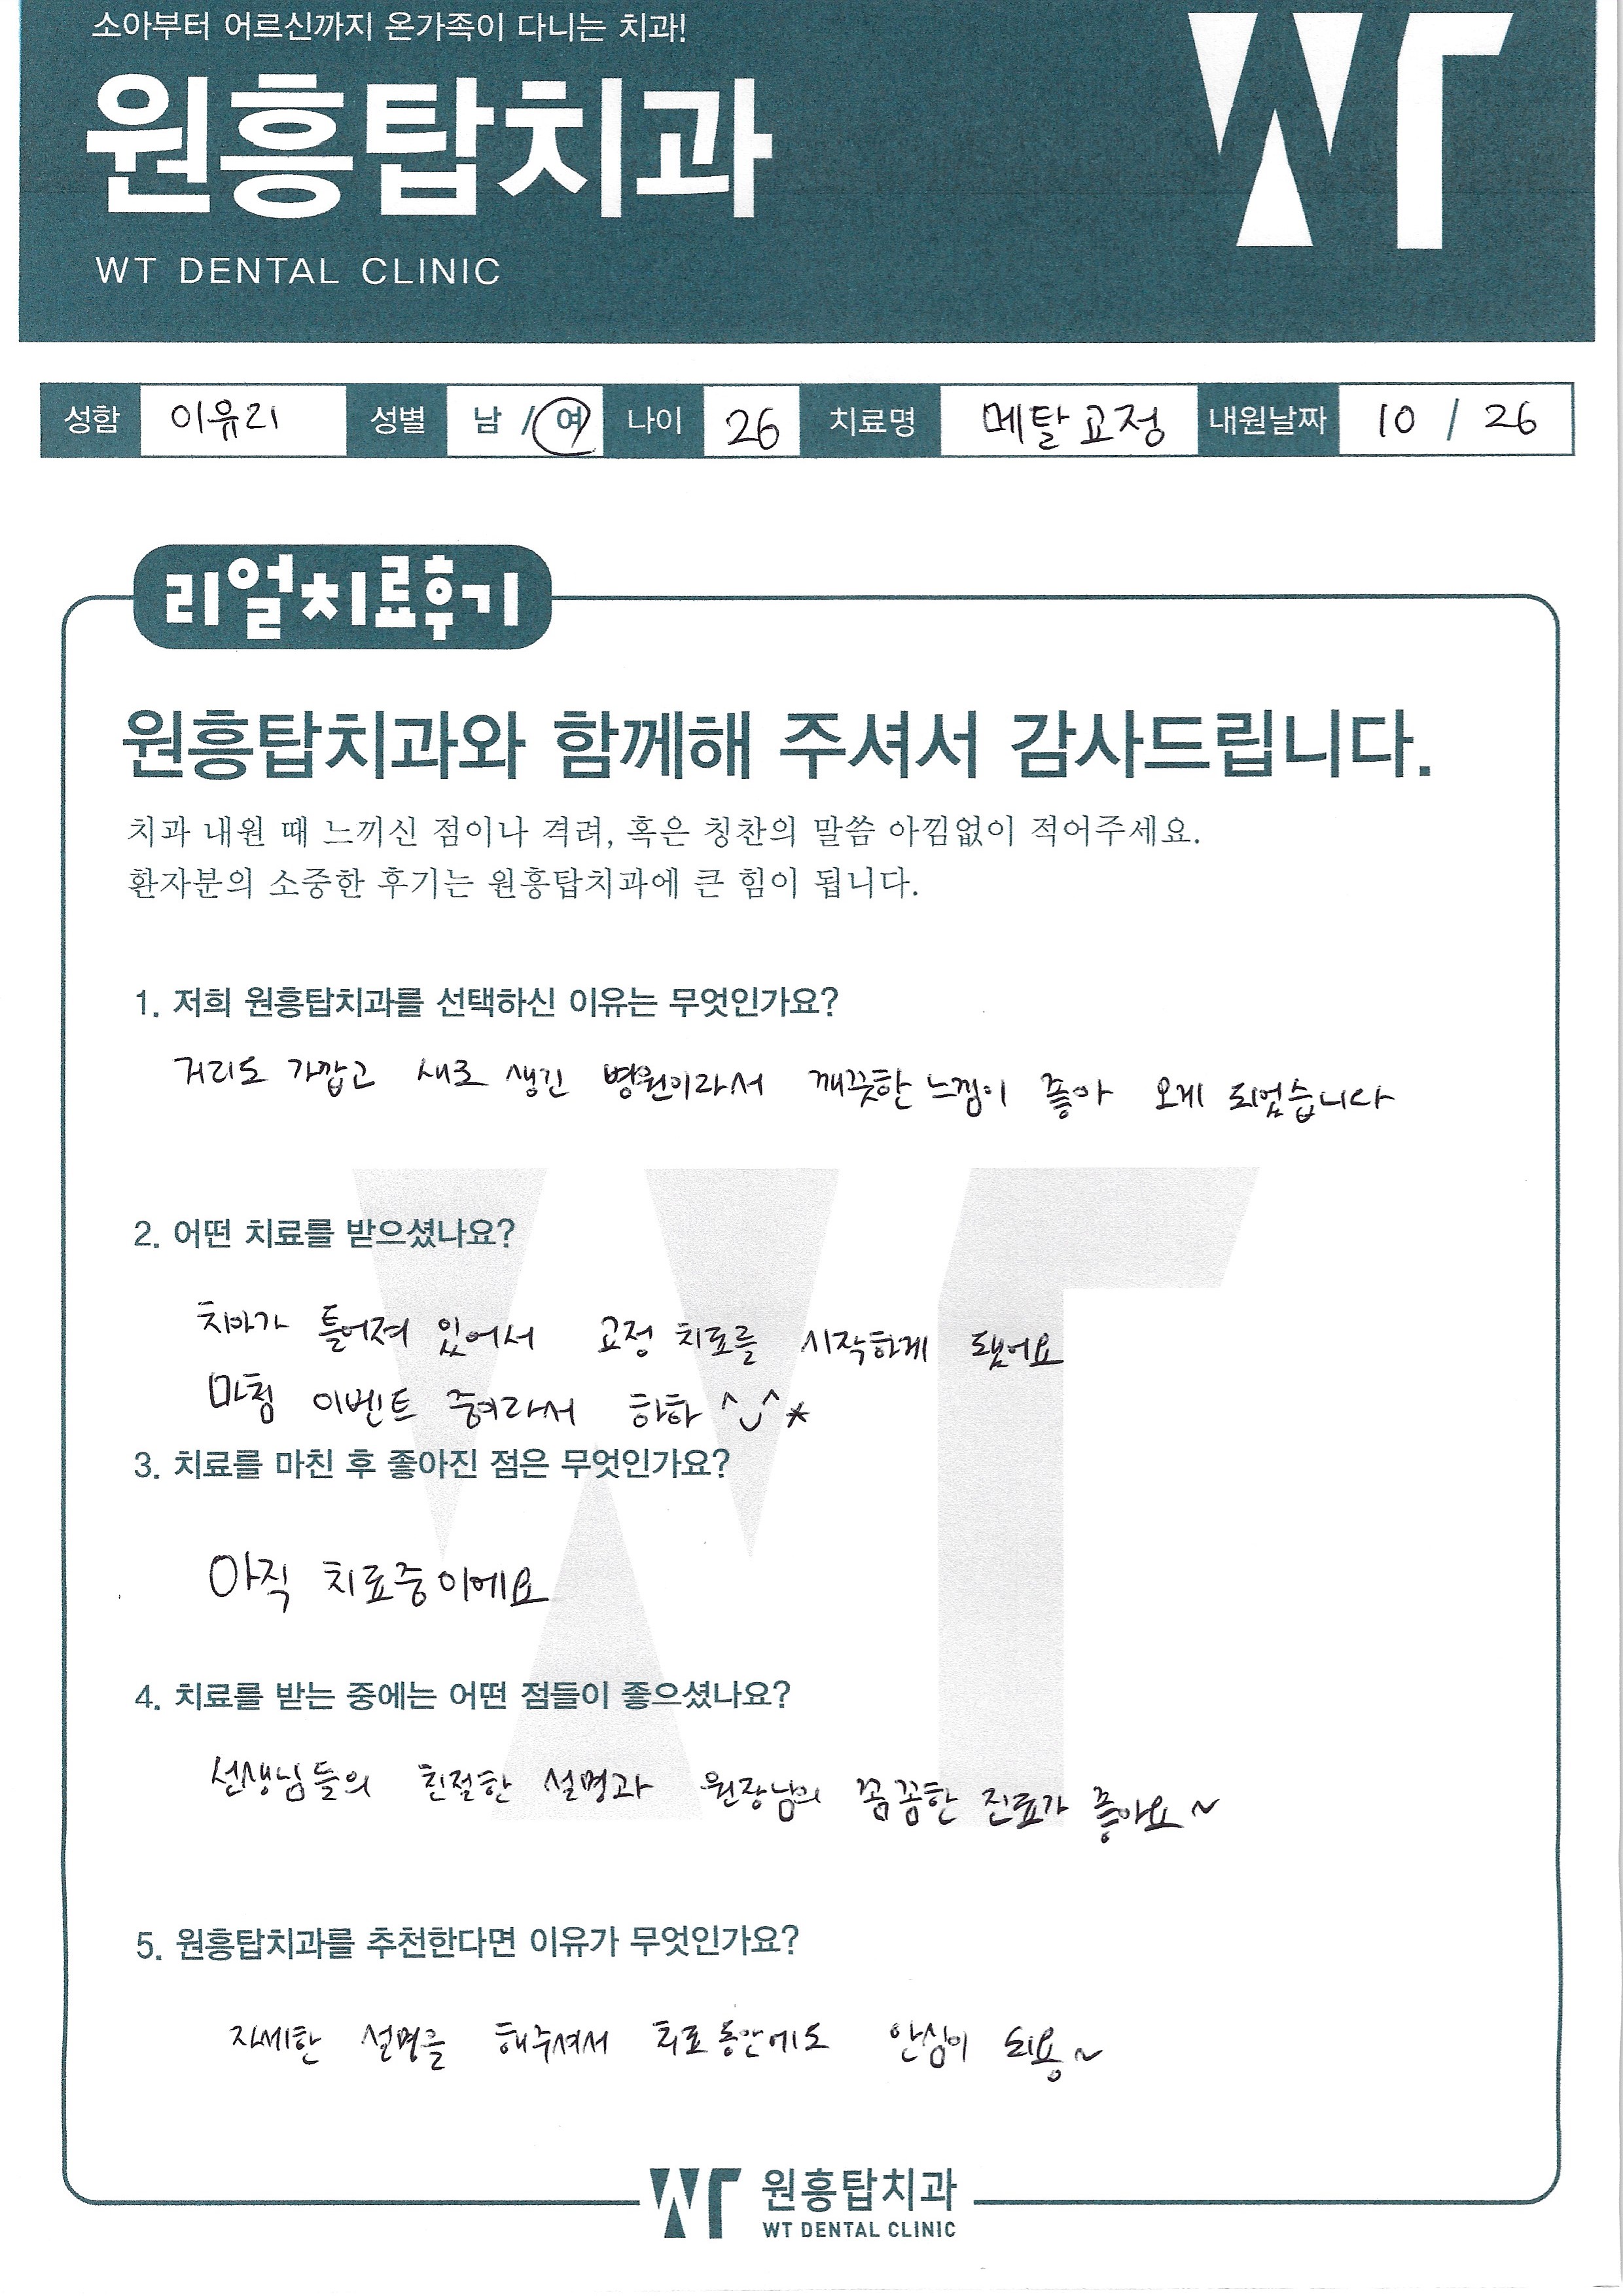 소아부터 어르신까지 온가족이 다니는 치과!
원흥탑치과
WT DENTAL CLINIC
WT
성함 이유리 성별 남 / 여 나이 26 치료명 메탈교정 내원날짜 10 / 26
리얼치료후기
원흥탑치과와 함께해 주셔서 감사드립니다.
치과 내원 때 느끼신 점이나 격려, 혹은 칭찬의 말씀 아낌없이 적어주세요.
환자분의 소중한 후기는 원흥탑치과에 큰 힘이 됩니다.
1. 저희 원흥탑치과를 선택하신 이유는 무엇인가요?
거리도 가깝고 새로 생긴 병원이라서 깨끗한 느낌이 좋아 오게 되었습니다
2. 어떤 치료를 받으셨나요?
치아가 틀어져 있어서 교정 치료를 시작하게 됐어요
마침 이벤트 중이라서 하하 ^‿^*
3. 치료를 마친 후 좋아진 점은 무엇인가요?
아직 치료중이에요
4. 치료를 받는 중에는 어떤 점들이 좋으셨나요?
선생님들의 친절한 설명과 원장님의 꼼꼼한 진료가 좋아요~
5. 원흥탑치과를 추천한다면 이유가 무엇인가요?
자세한 설명을 해주셔서 치료 동안에도 안심이 되용~
WT 원흥탑치과
WT DENTAL CLINIC